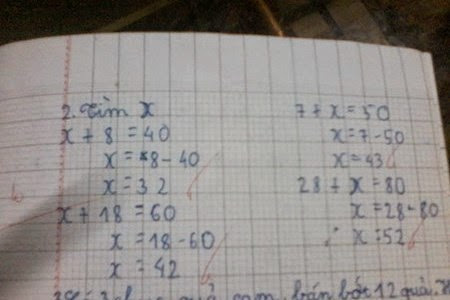 2. Tìm x
x + 8 = 40
x = 8 - 40
x = 32
x + 18 = 60
x = 18 - 60
x = 42
7 + x = 50
x = 7 - 50
x = 43
28 + x = 80
x = 28 - 80
x = 52
bán bớt 12 quả.